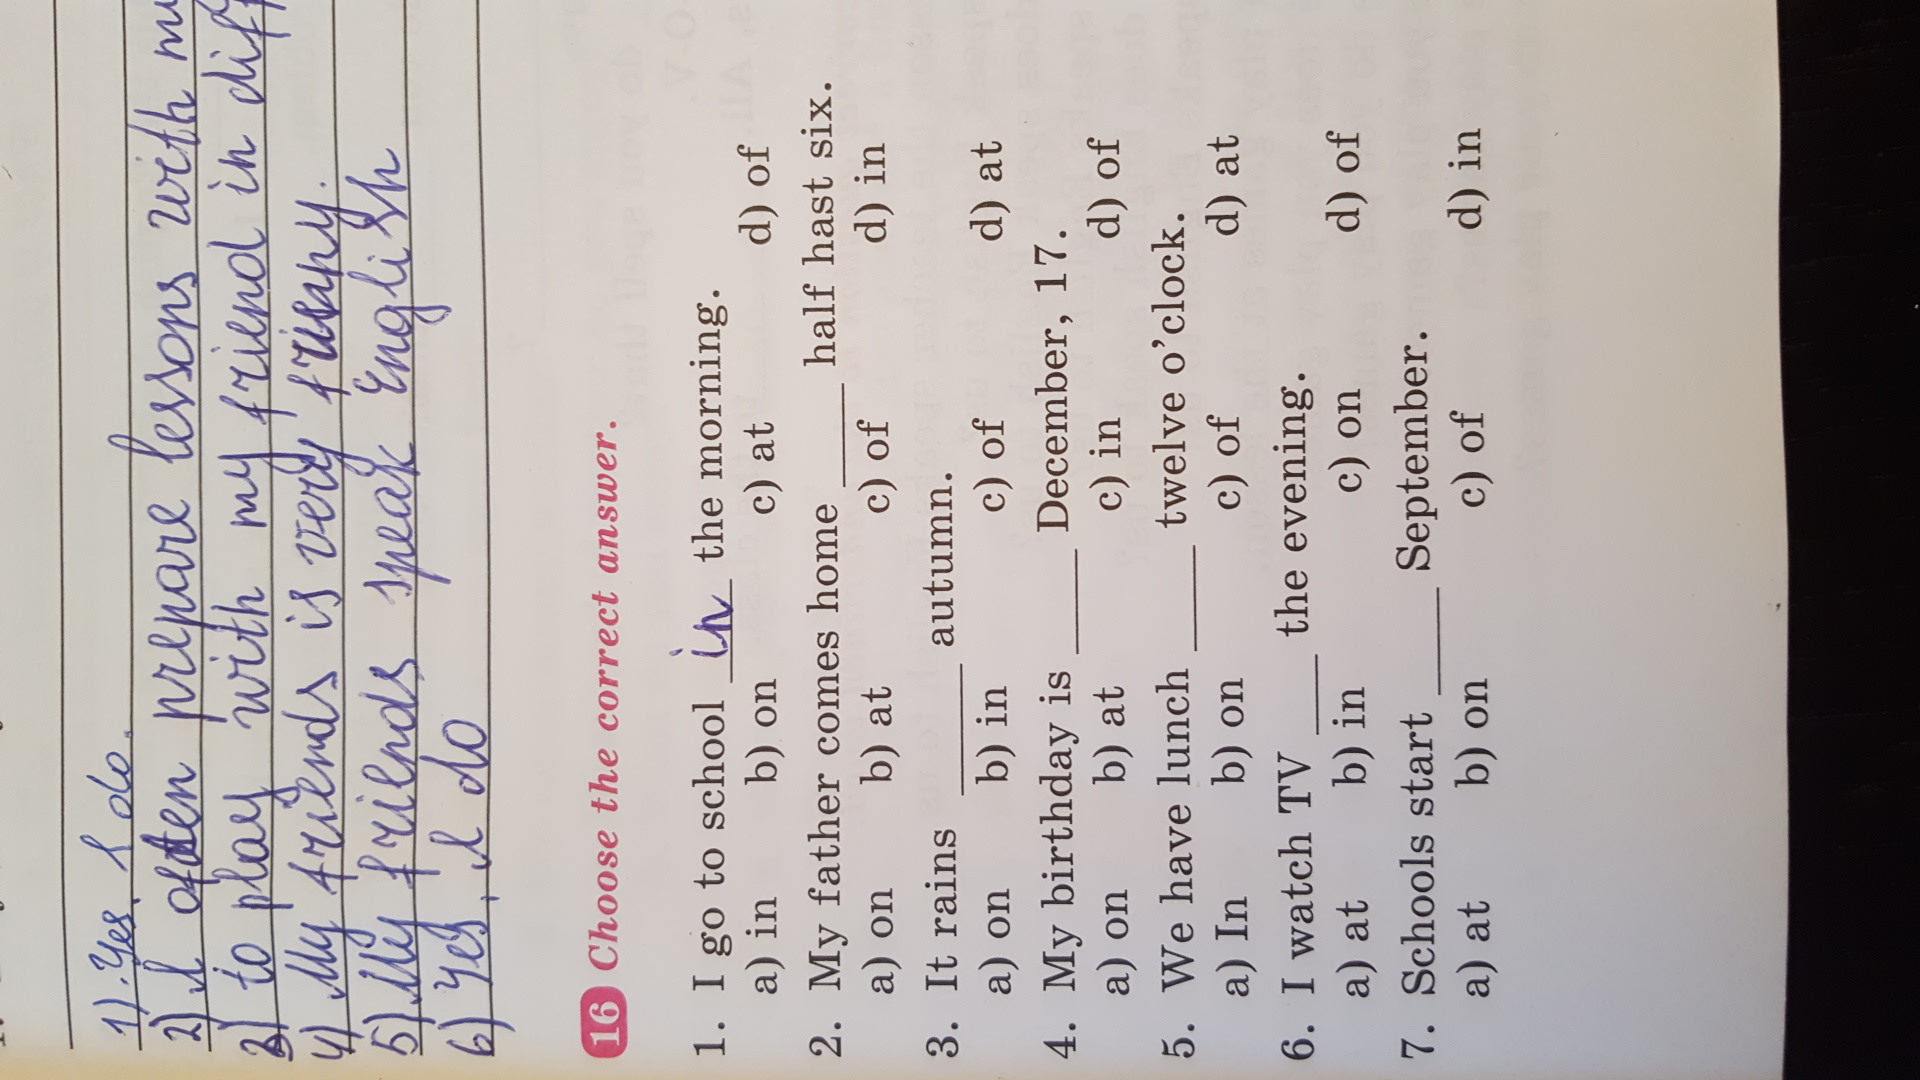 1). Yes, I do.
2) I often prepare lessons with
3) to play with my friend in
4) My friends is very
5) My friends speak English
6) Yes, I do
16 Choose the correct answer.
1. I go to school in the morning.
a) in b) on c) at d) of
2. My father comes home ____ half hast six.
a) on b) at c) of d) in
3. It rains ____ autumn.
a) on b) in c) of d) at
4. My birthday is ____ December, 17.
a) on b) at c) in d) of
5. We have lunch ____ twelve o'clock.
a) In b) on c) of d) at
6. I watch TV ____ the evening.
a) at b) in c) on d) of
7. Schools start ____ September.
a) at b) on c) of d) in